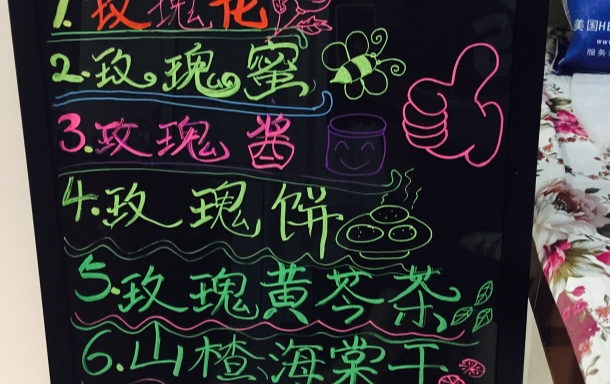 1.玫瑰花
2.玫瑰蜜
3.玫瑰酱
4.玫瑰饼
5.玫瑰黄芩茶
6.山楂海棠干
美国HE
www
服务